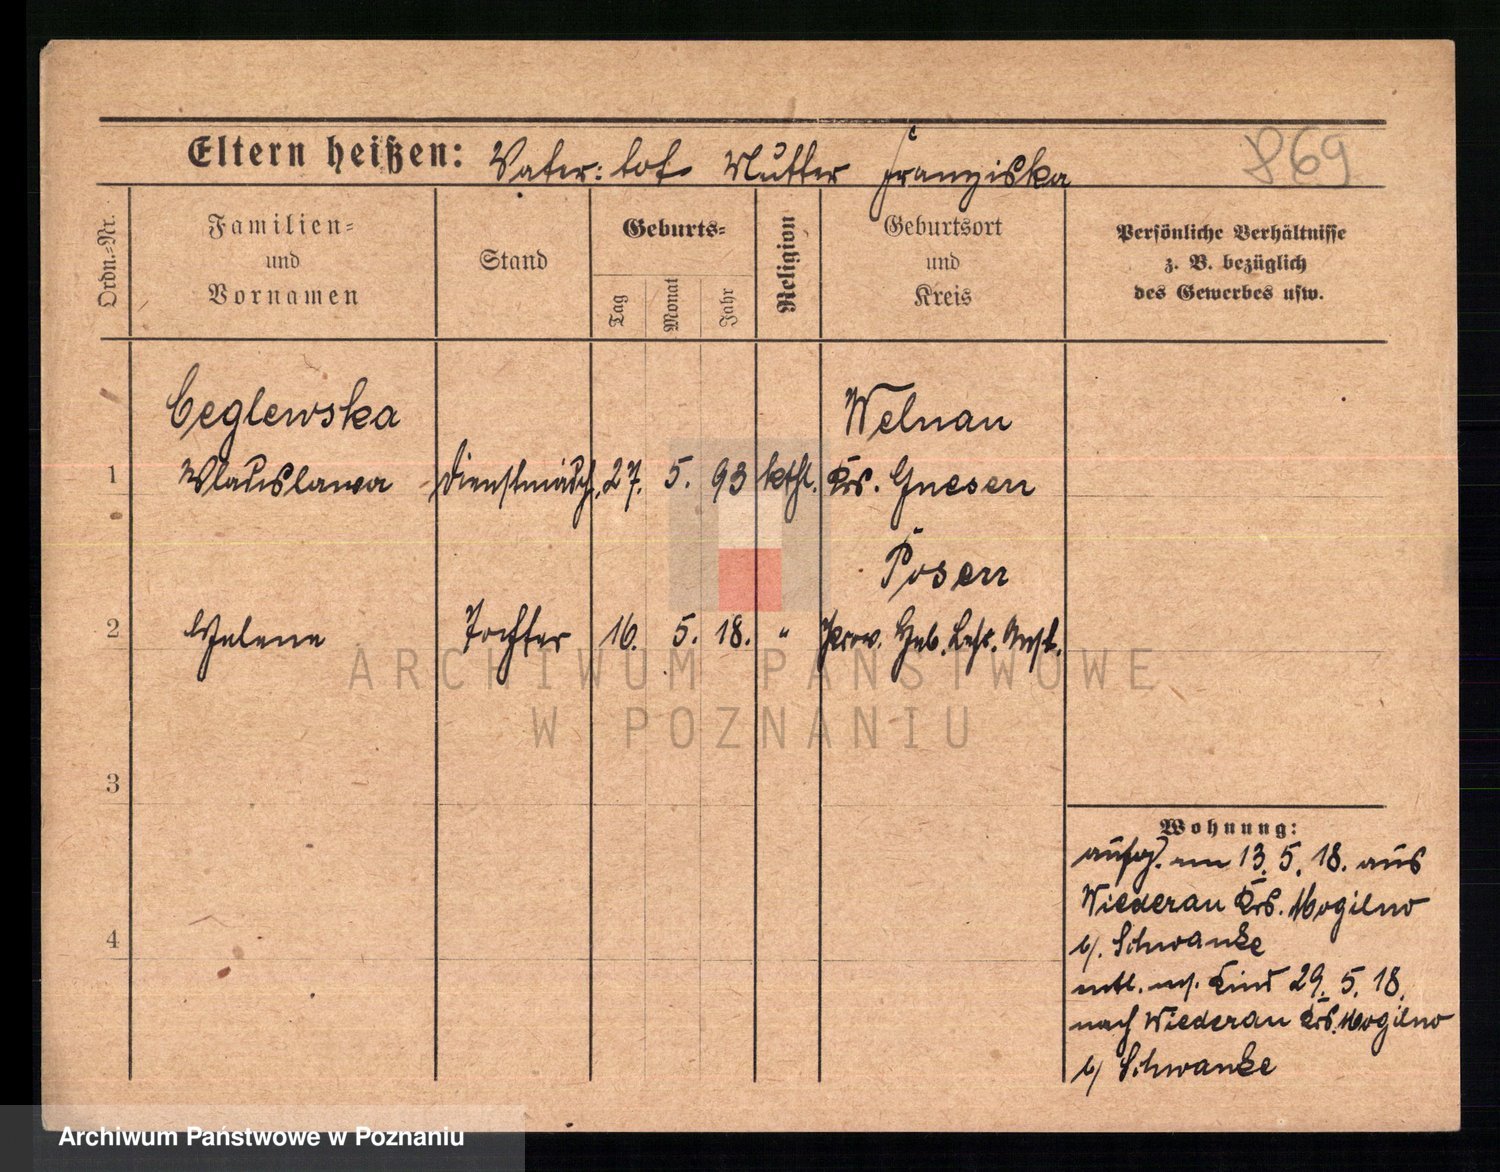 Eltern heißen: Vater: tot. Mutter Franziska
869
Ordn.=Nr.
Familien=
und
Vornamen
Stand
Geburts=
Tag
Monat
Jahr
Religion
Geburtsort
und
Kreis
Persönliche Verhältnisse
z. B. bezüglich
des Gewerbes usw.
Ceglewska
Welnau
1 Wladislawa Dienstmädch. 27. 5. 93 kthl. Krs. Gnesen
Posen
2 Helene Tochter 16. 5. 18. " Prov. Heb. Lehr. Anst.
3
4
Wohnung:
aufg. am 13. 5. 18. aus
Wiederau Krs. Mogilno
b/. Schwanke
entl. m/. Kind 29. 5. 18.
nach Wiederau Krs. Mogilno
b/ Schwanke
ARCHIWUM PAŃSTWOWE
W POZNANIU
Archiwum Państwowe w Poznaniu